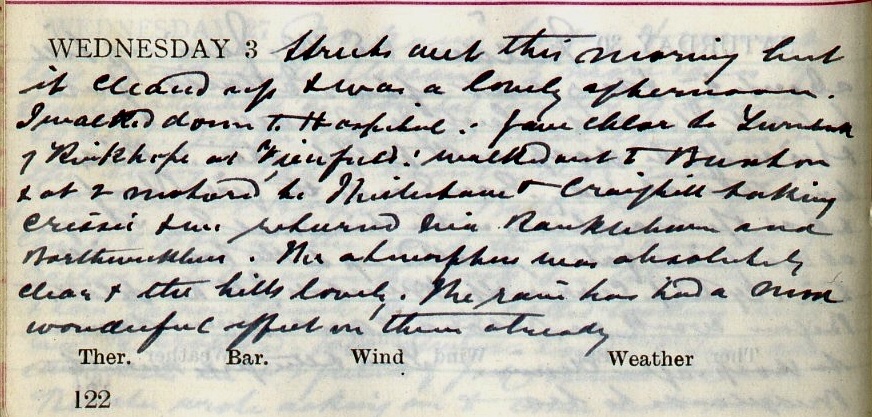 WEDNESDAY 3 this morning but
it cleared up & was a lovely afternoon.
I walked down to Hospital. gave chlor to
of Kirkhope at Viewfield. walked out to Buxton
& at 2 motored to & Craighill taking
Crissie & we returned via Rankleburn and
Borthwickbrae. The atmosphere was absolutely
clear & the hills lovely. The rain has had a most
wonderful effect on them already
Ther. Bar. Wind Weather
122